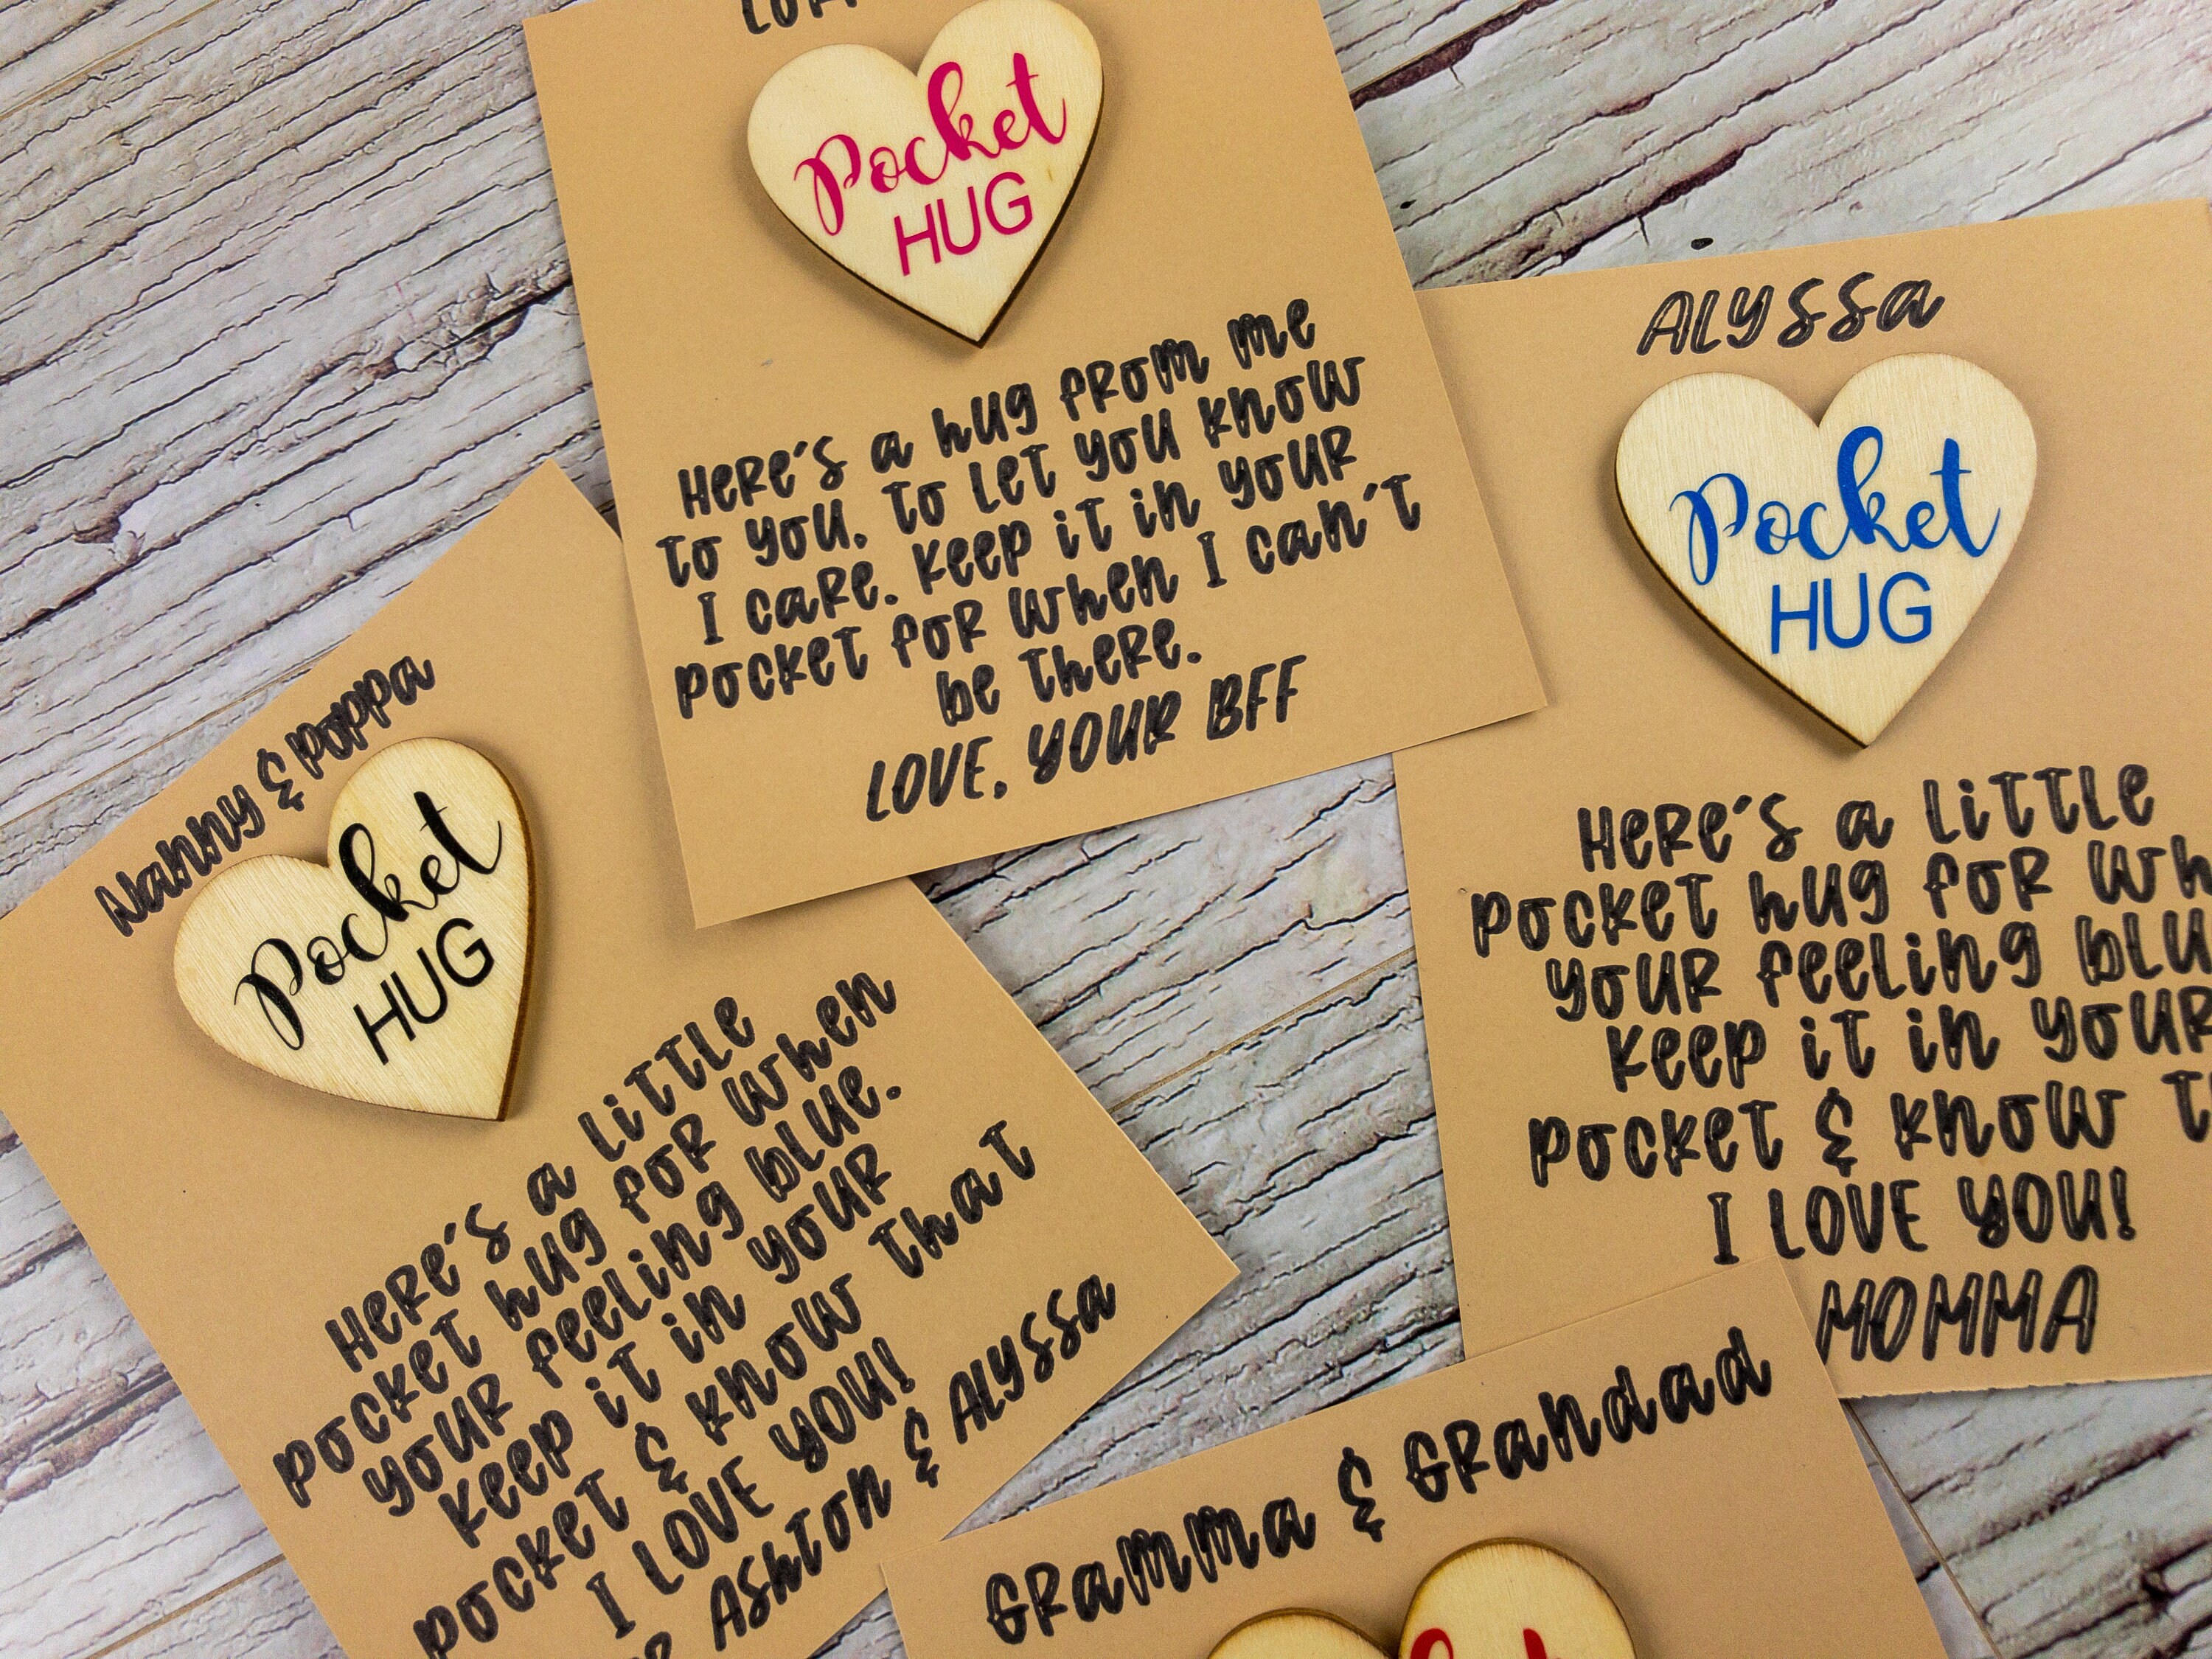 Pocket
HUG
Here's a hug from me
to you. To let you know
I care. Keep it in your
pocket for when I can't
be there.
LOVE, YOUR BFF
ALYSSA
Pocket
HUG
Here's a little
pocket hug for
your feeling
Keep it in your
pocket & know
I LOVE YOU!
MOMMA
Nanny & Poppa
Pocket
HUG
Here's a little
pocket hug for when
your feeling blue.
Keep it in your
pocket & know that
I LOVE YOU!
Ashton & Alyssa
Gramma & Grandad